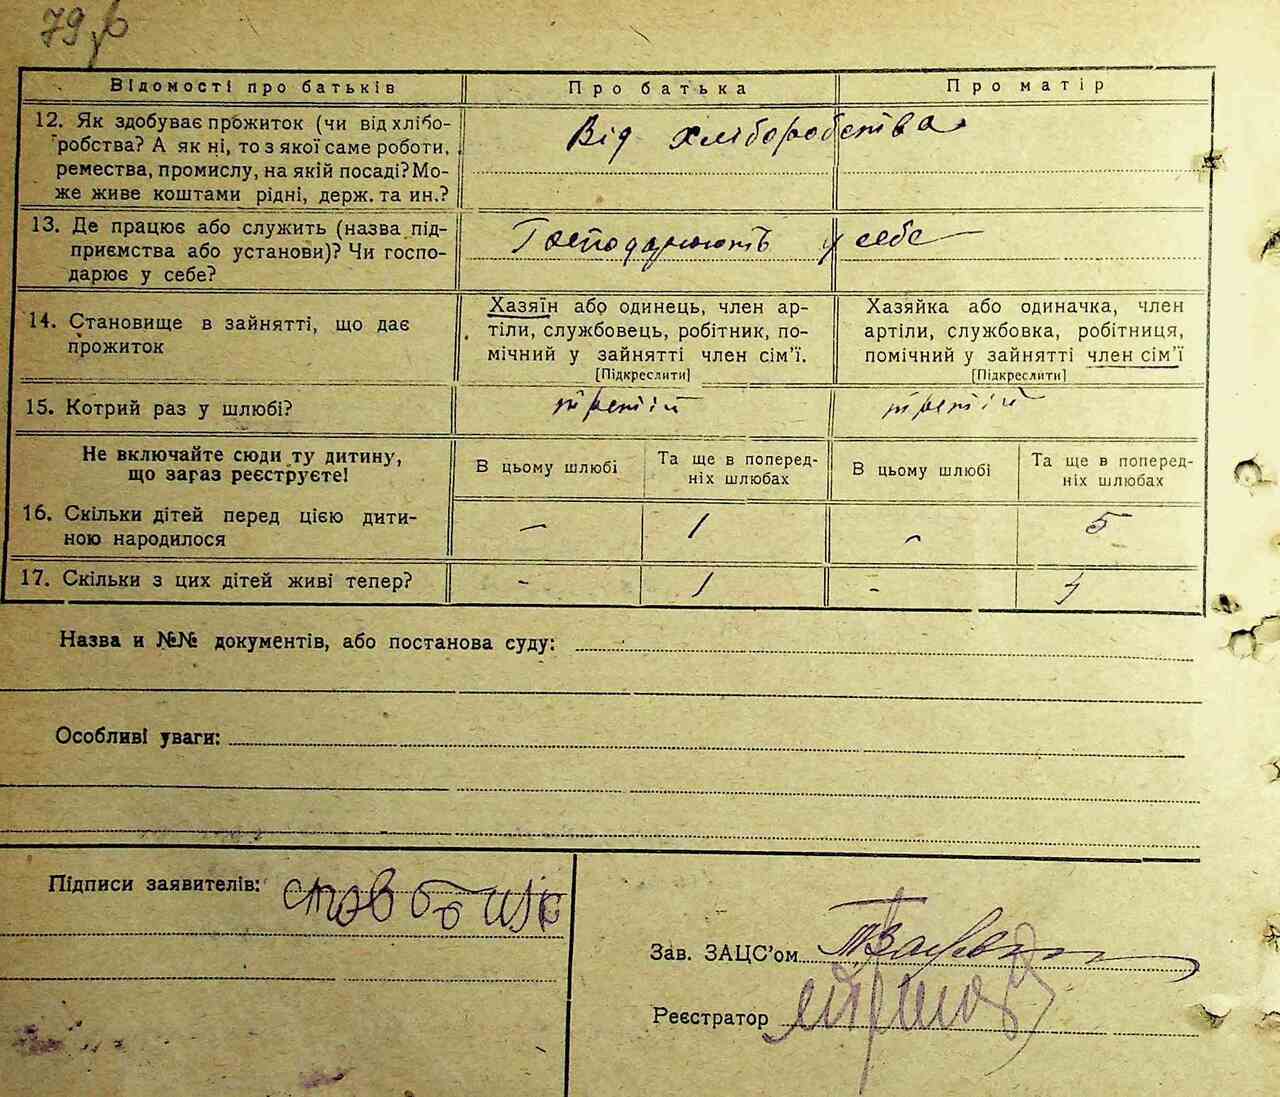 Відомості про батьків
Про батька
Про матір
12. Як здобуває прожиток (чи від хлібо-
робства? А як ні, то з якої саме роботи,
ремества, промислу, на якій посаді? Мо-
же живе коштами рідні, держ. та ин.?
Від хліборобства
13. Де працює або служить (назва під-
приємства або установи)? Чи госпо-
дарює у себе?
Господарюють у себе
14. Становище в зайнятті, що дає
прожиток
Хазяїн або одинець, член ар-
тіли, службовець, робітник, по-
мічний у зайнятті член сім'ї.
[Підкреслити]
Хазяйка або одиначка, член
артіли, службовка, робітниця,
помічний у зайнятті член сім'ї
[Підкреслити]
15. Котрий раз у шлюбі?
третій
третій
Не включайте сюди ту дитину,
що зараз реєструєте!
В цьому шлюбі
Та ще в поперед-
ніх шлюбах
В цьому шлюбі
Та ще в поперед-
ніх шлюбах
16. Скільки дітей перед цією дити-
ною народилося
-
1
-
5
17. Скільки з цих дітей живі тепер?
-
1
-
Назва и №№ документів, або постанова суду:
Особливі уваги:
Підписи заявителів:
Зав. ЗАЦС'ом
Реєстратор